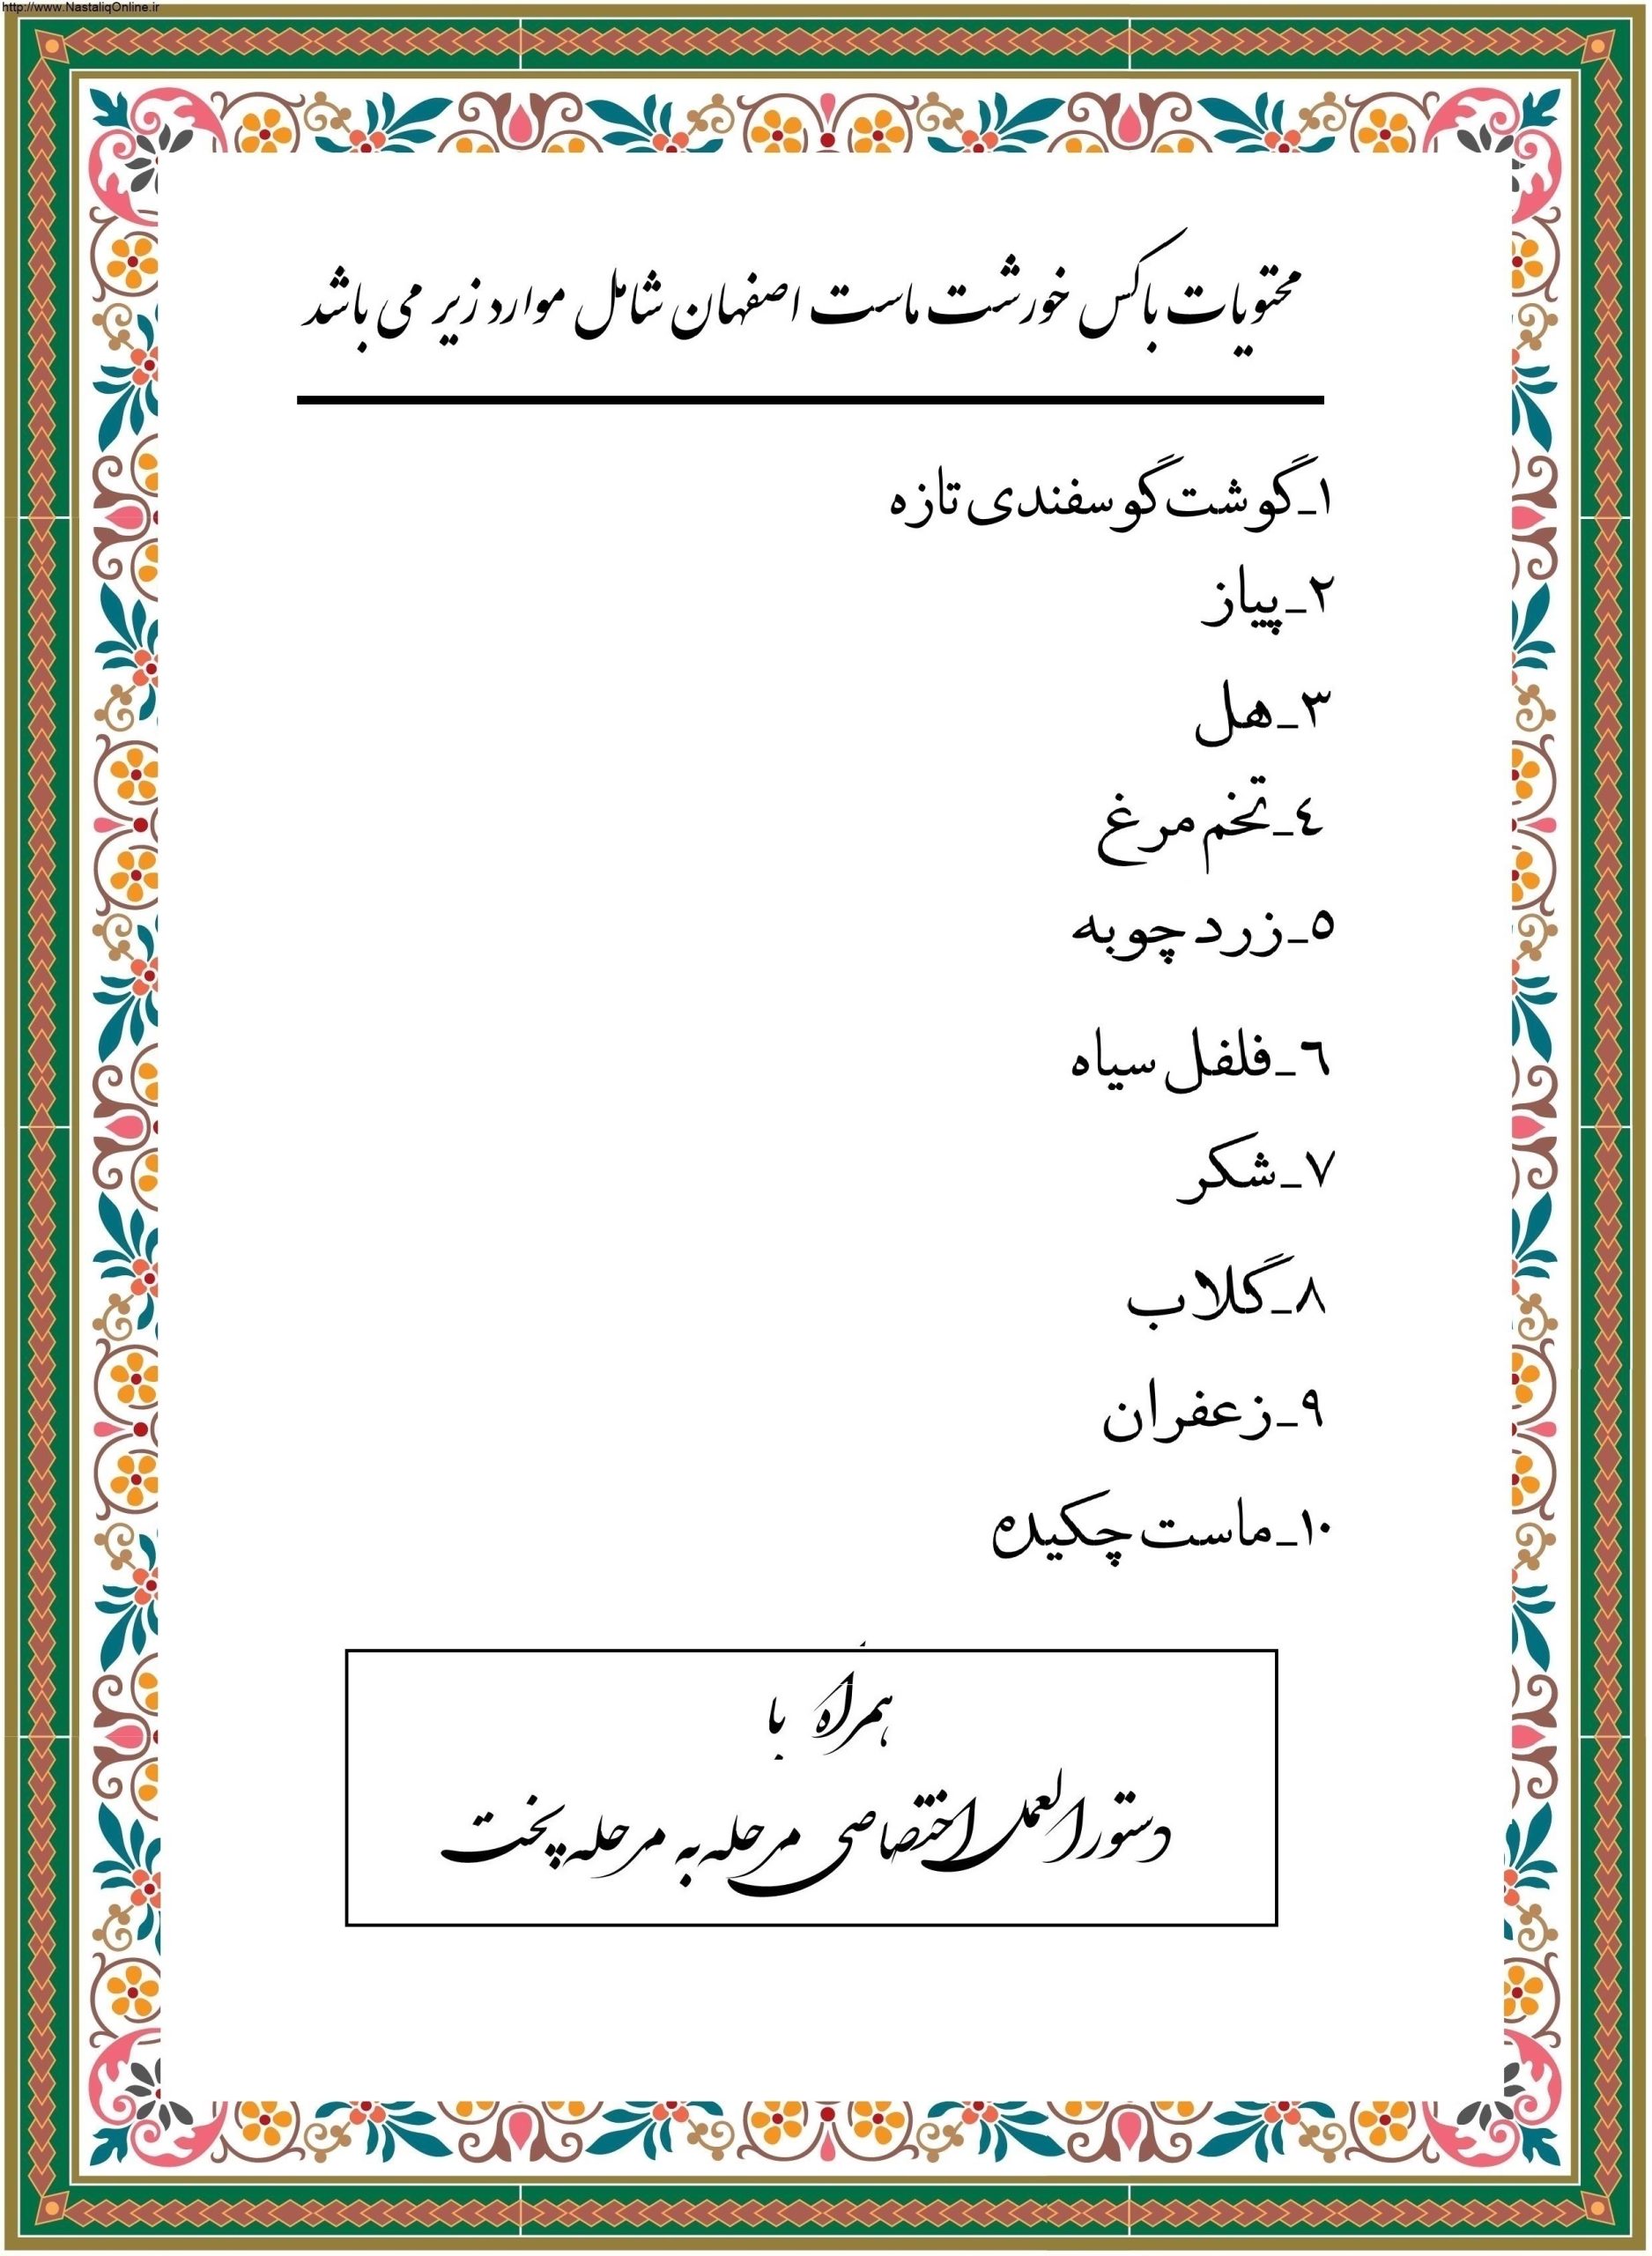 http://www.NastaliqOnline.ir
محتویات باکس خورشت ماست اصفهان شامل موارد زیر می باشد
۱_گوشت گوسفندی تازه
۲_پیاز
۳_هل
٤_تخم مرغ
٥_زرد چوبه
٦_فلفل سیاه
۷_شکر
۸_گلاب
۹_زعفران
۱۰_ماست چکیده
همراه با
دستورالعمل اختصاصی مرحله به مرحله پخت